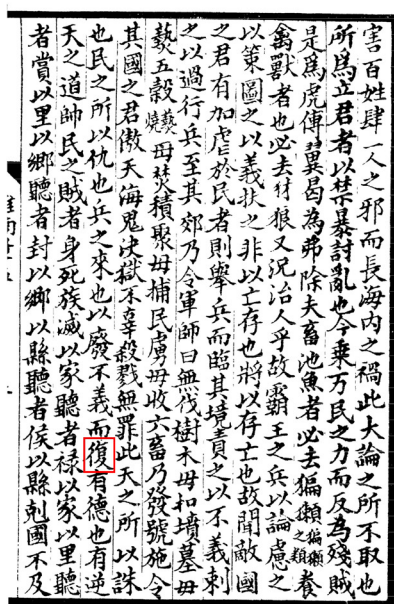 害百姓肆一人之邪而長海内之禍此大論之所不取也
所為立君者以禁暴討亂也今乗万民之力而反為殘賊
是為虎傅翼曷為弗除夫畜池魚者必去猵獺猵獺之類養
禽獸者也必去豺狼又況治人乎故霸王之兵以論慮之
以策圖之以義扶之非以亡存也將以存亡也故聞敵國
之君有加虐於民者則舉兵而臨其境責之以不義刺
之以過行兵至其郊乃令軍師曰無伐樹木毋和墳墓毋
爇五穀爇燒毋焚積聚毋捕民虜毋收六畜乃發號施令
其國之君傲天海鬼決獄不辜殺戮無罪此天之所以誅
也民之所以仇也兵之來也以廢不義而復有德也有逆
天之道帥民之賊者身死族滅以家聽者禄以家以里聽
者賞以里以鄉聽者封以鄉以縣聽者侯以縣剋國不及